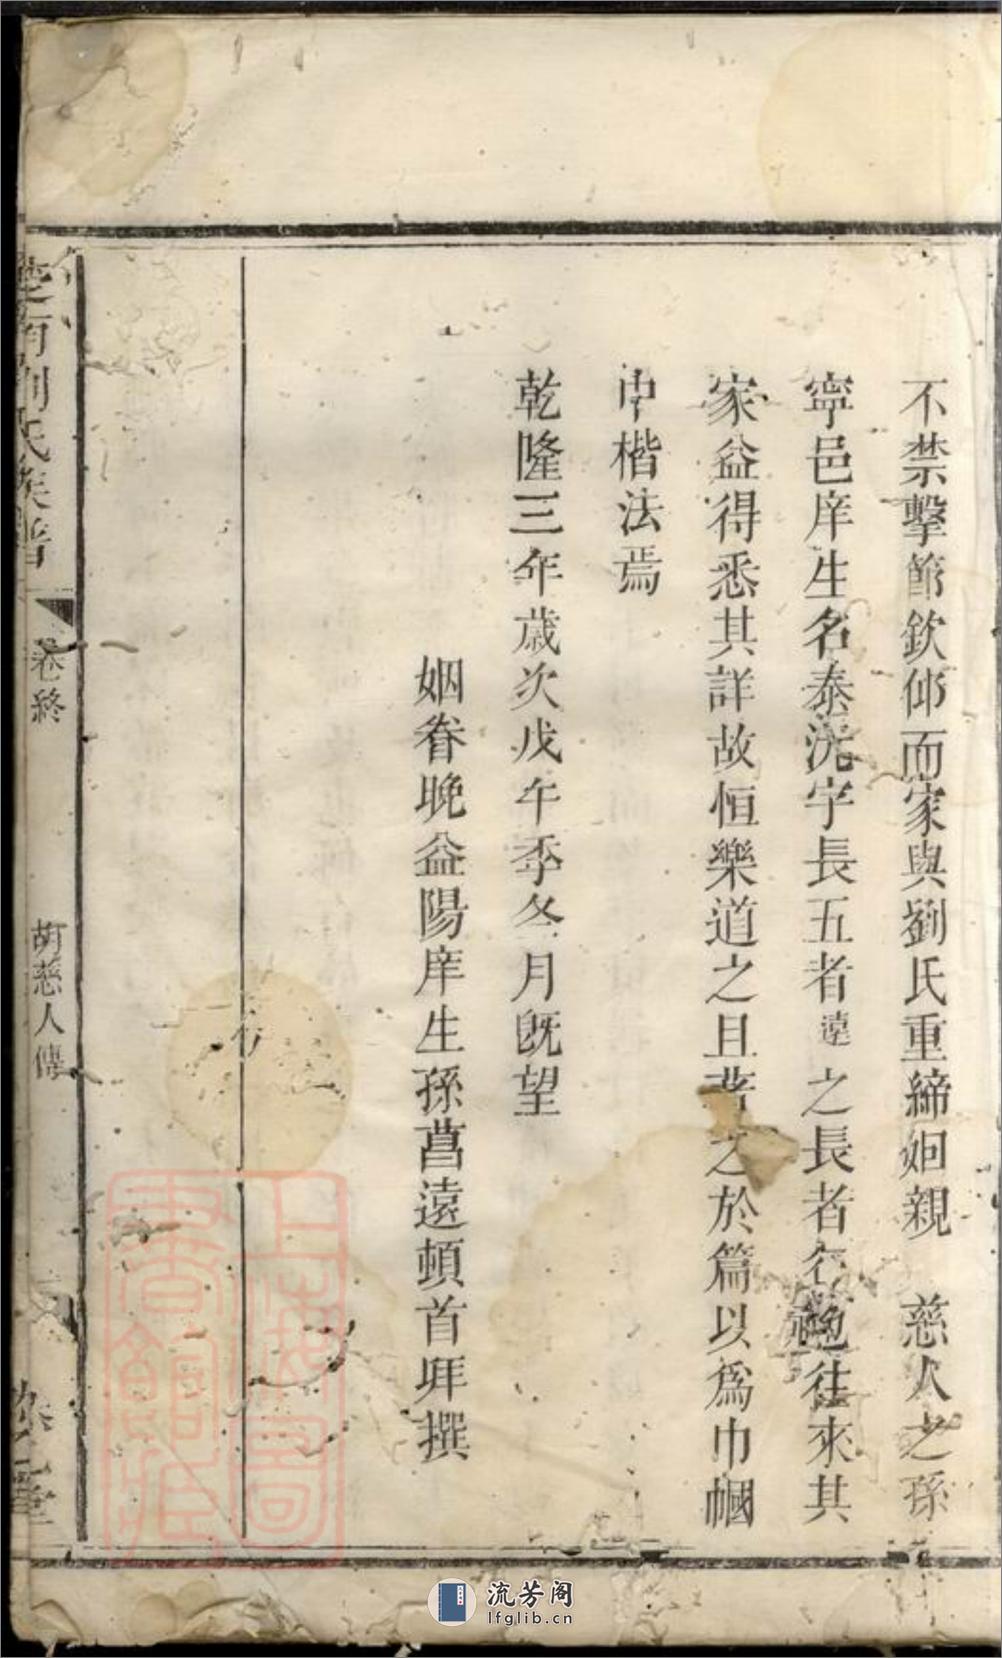 不禁擊節欽仰而家與劉氏重締姻親　慈人之孫
寧邑庠生名泰洸字長五者遠之長者行 往來其
家益得悉其詳故恒樂道之且著之於篇以爲巾幗
中楷法焉
乾隆三年歲次戊午季冬月旣望
姻眷晚益陽庠生孫菖遠頓首拜撰
楚南劉氏族譜
卷終
胡慈人傳
上海圖書館藏
流芳阁
lfglib.cn